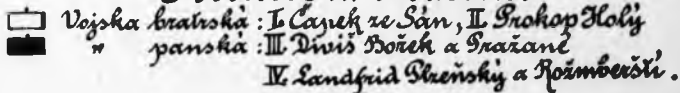 Vojska bratrská : I. Čapek ze Sán, II. Prokop Holý
" panská : III. Diviš Bořek a Pražané
IV. Landfrid Plzeňský a Rožmberští.